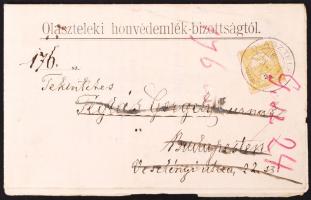 Olaszteleki honvédemlék-bizottságtól.
176. sz.
96
Tekintetes
Gergely urnak
Budapesten
Vesselényi utca, 22. sz.
24